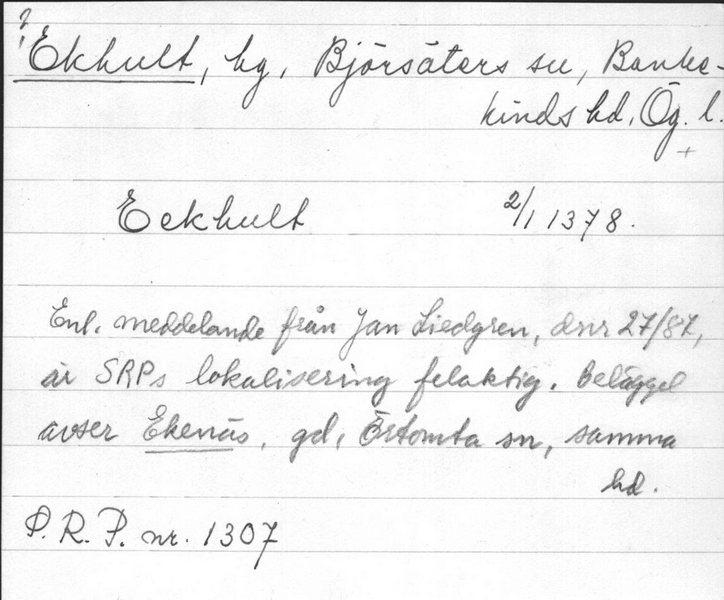 ?
Ekhult, hg, Björsäters sn, Banke-
kinds hd, Ög. l.
+
Eckhult 2/1 1378.
Enl. meddelande från Jan Liedgren, dnr 27/87,
är SRPs lokalisering felaktig. Belägget
avser Ekenäs, gd, Örtomta sn, samma
hd.
P. R. P. nr. 1307